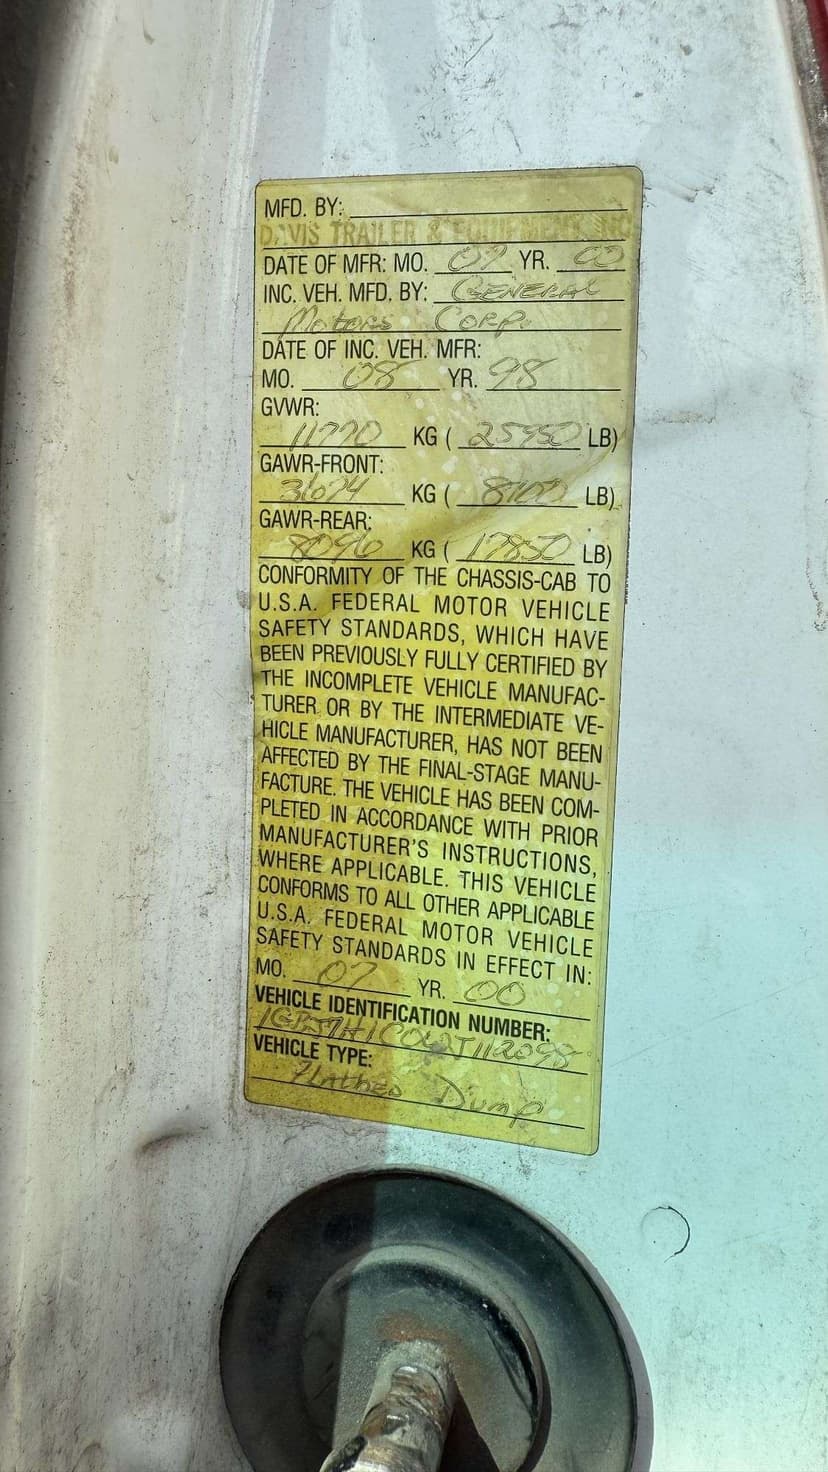 MFD. BY:
DAVIS TRAILER & EQUIPMENT, INC
DATE OF MFR: MO. 07 YR. 00
INC. VEH. MFD. BY: GENERAL
Motors Corp.
DATE OF INC. VEH. MFR:
MO. 08 YR. 98
GVWR:
11770 KG ( 25950 LB)
GAWR-FRONT:
3674 KG ( 8100 LB)
GAWR-REAR:
8096 KG ( 17850 LB)
CONFORMITY OF THE CHASSIS-CAB TO
U.S.A. FEDERAL MOTOR VEHICLE
SAFETY STANDARDS, WHICH HAVE
BEEN PREVIOUSLY FULLY CERTIFIED BY
THE INCOMPLETE VEHICLE MANUFAC-
TURER OR BY THE INTERMEDIATE VE-
HICLE MANUFACTURER, HAS NOT BEEN
AFFECTED BY THE FINAL-STAGE MANU-
FACTURE. THE VEHICLE HAS BEEN COM-
PLETED IN ACCORDANCE WITH PRIOR
MANUFACTURER'S INSTRUCTIONS,
WHERE APPLICABLE. THIS VEHICLE
CONFORMS TO ALL OTHER APPLICABLE
U.S.A. FEDERAL MOTOR VEHICLE
SAFETY STANDARDS IN EFFECT IN:
MO. 07 YR. 00
VEHICLE IDENTIFICATION NUMBER:
VEHICLE TYPE:
Flatbed Dump